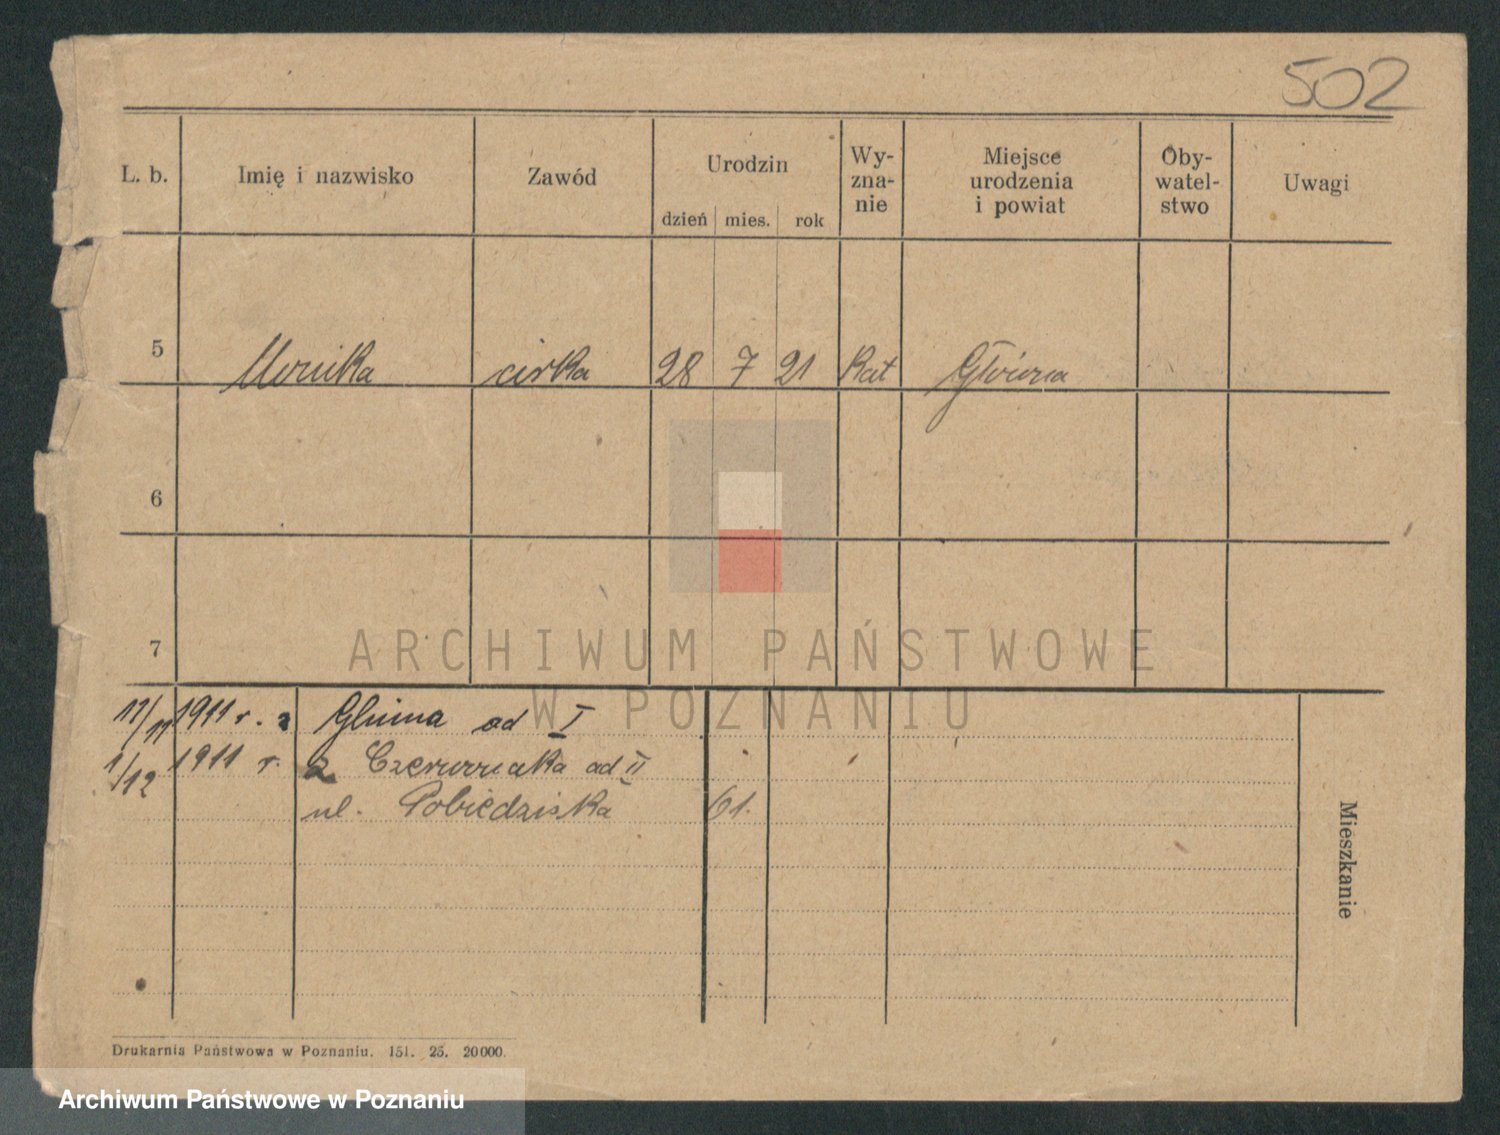 502
L. b. Imię i nazwisko Zawód Urodzin Wy-zna-nie Miejsce urodzenia i powiat Oby-watel-stwo Uwagi
dzień mies. rok
5 Monika cirka 28 7 21 Kat Główna
6
7
ARCHIWUM PAŃSTWOWE
W POZNANIU
17/11 1911 r. z Gluina od I
1/12 1911 r. z Czerwonaka od II
ul. Pobiedziska 61.
Mieszkanie
Drukarnia Państwowa w Poznaniu. 151. 25. 20000.
Archiwum Państwowe w Poznaniu